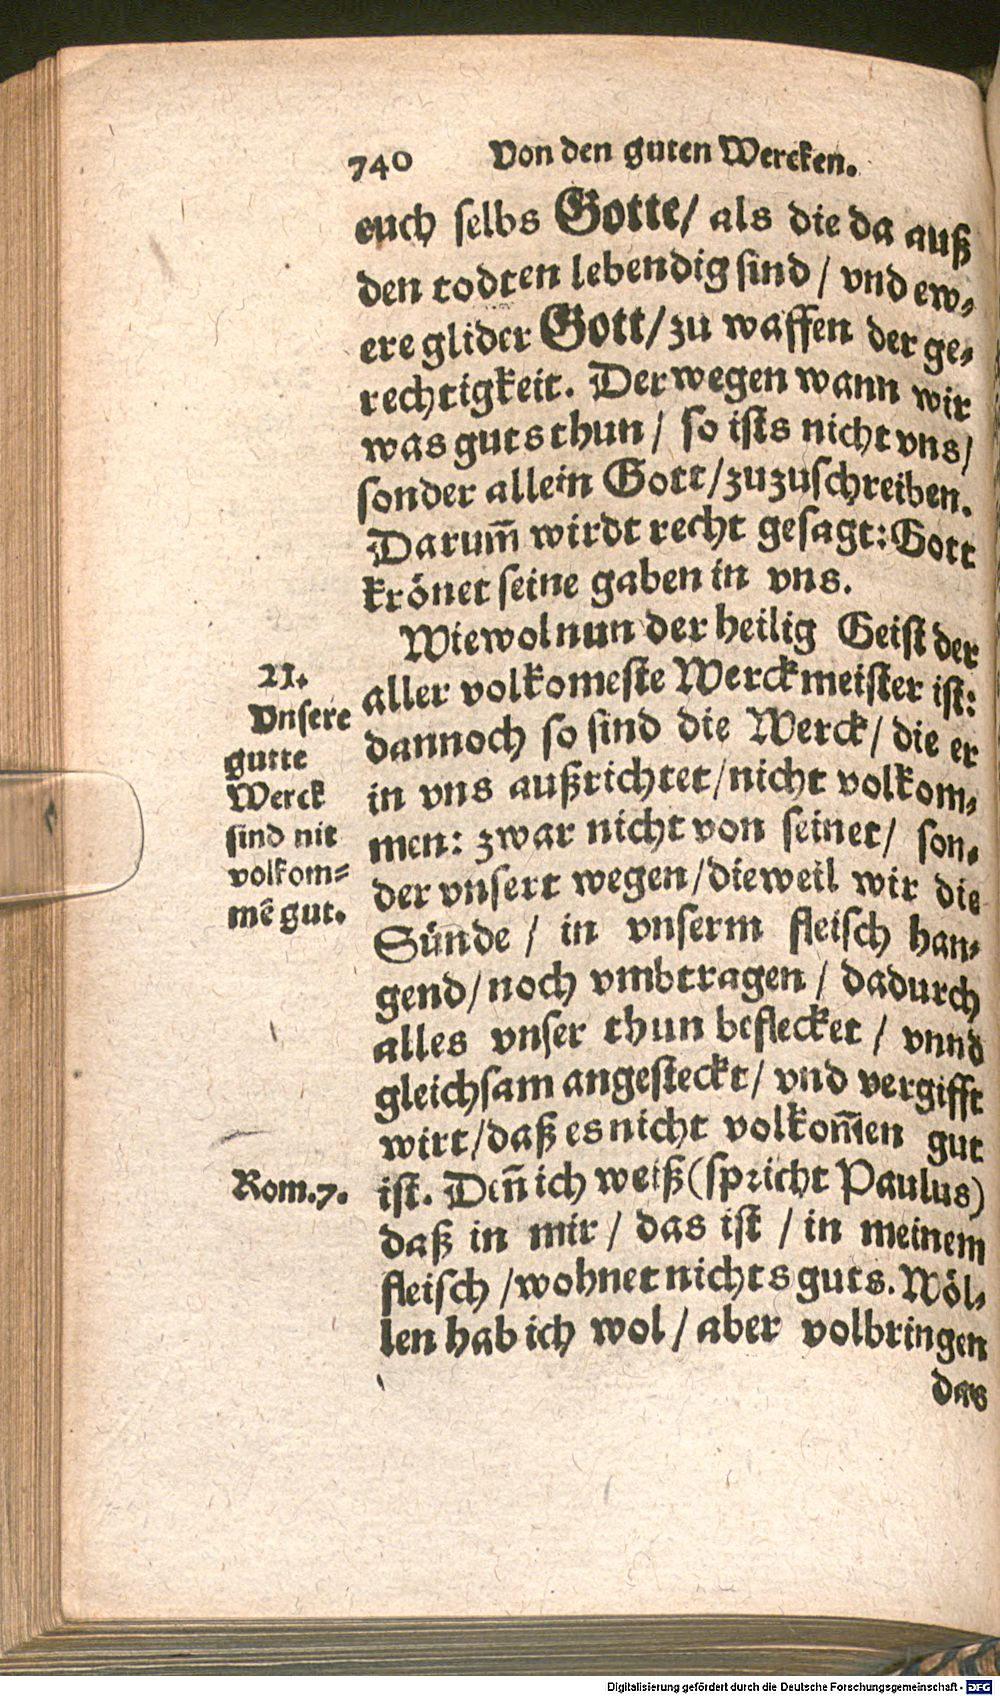 740 Von den guten Wercken.
euch selbs Gotte/ als die da auß
den todten lebendig sind / vnd ew⸗
ere glider Gott/ zu waffen der ge⸗
rechtigkeit. Derwegen wann wir
was guts thun / so ists nicht vns/
sonder allein Gott/ zuzuschreiben.
Darum̄ wirdt recht gesagt: Gott
krönet seine gaben in vns.
Wiewol nun der heilig Geist der
aller volkomeste Werckmeister ist:
dannoch so sind die Werck/ die er
in vns außrichtet/ nicht volkom⸗
men: zwar nicht von seinet/ son⸗
der vnsert wegen/ dieweil wir die
Sünde / in vnserm fleisch han⸗
gend/ noch vmbtragen / dadurch
alles vnser thun beflecket / vnnd
gleichsam angesteckt/ vnd vergifft
wirt/ daß es nicht volkom̄en gut
ist. Den̄ ich weiß (spricht Paulus)
daß in mir / das ist / in meinem
fleisch / wohnet nichts guts. Wöl⸗
len hab ich wol / aber volbringen
das
21.
Vnsere
gutte
Werck
sind nit
volkom⸗
mē gut.
Rom.7.
Digitalisierung gefördert durch die Deutsche Forschungsgemeinschaft - DFG